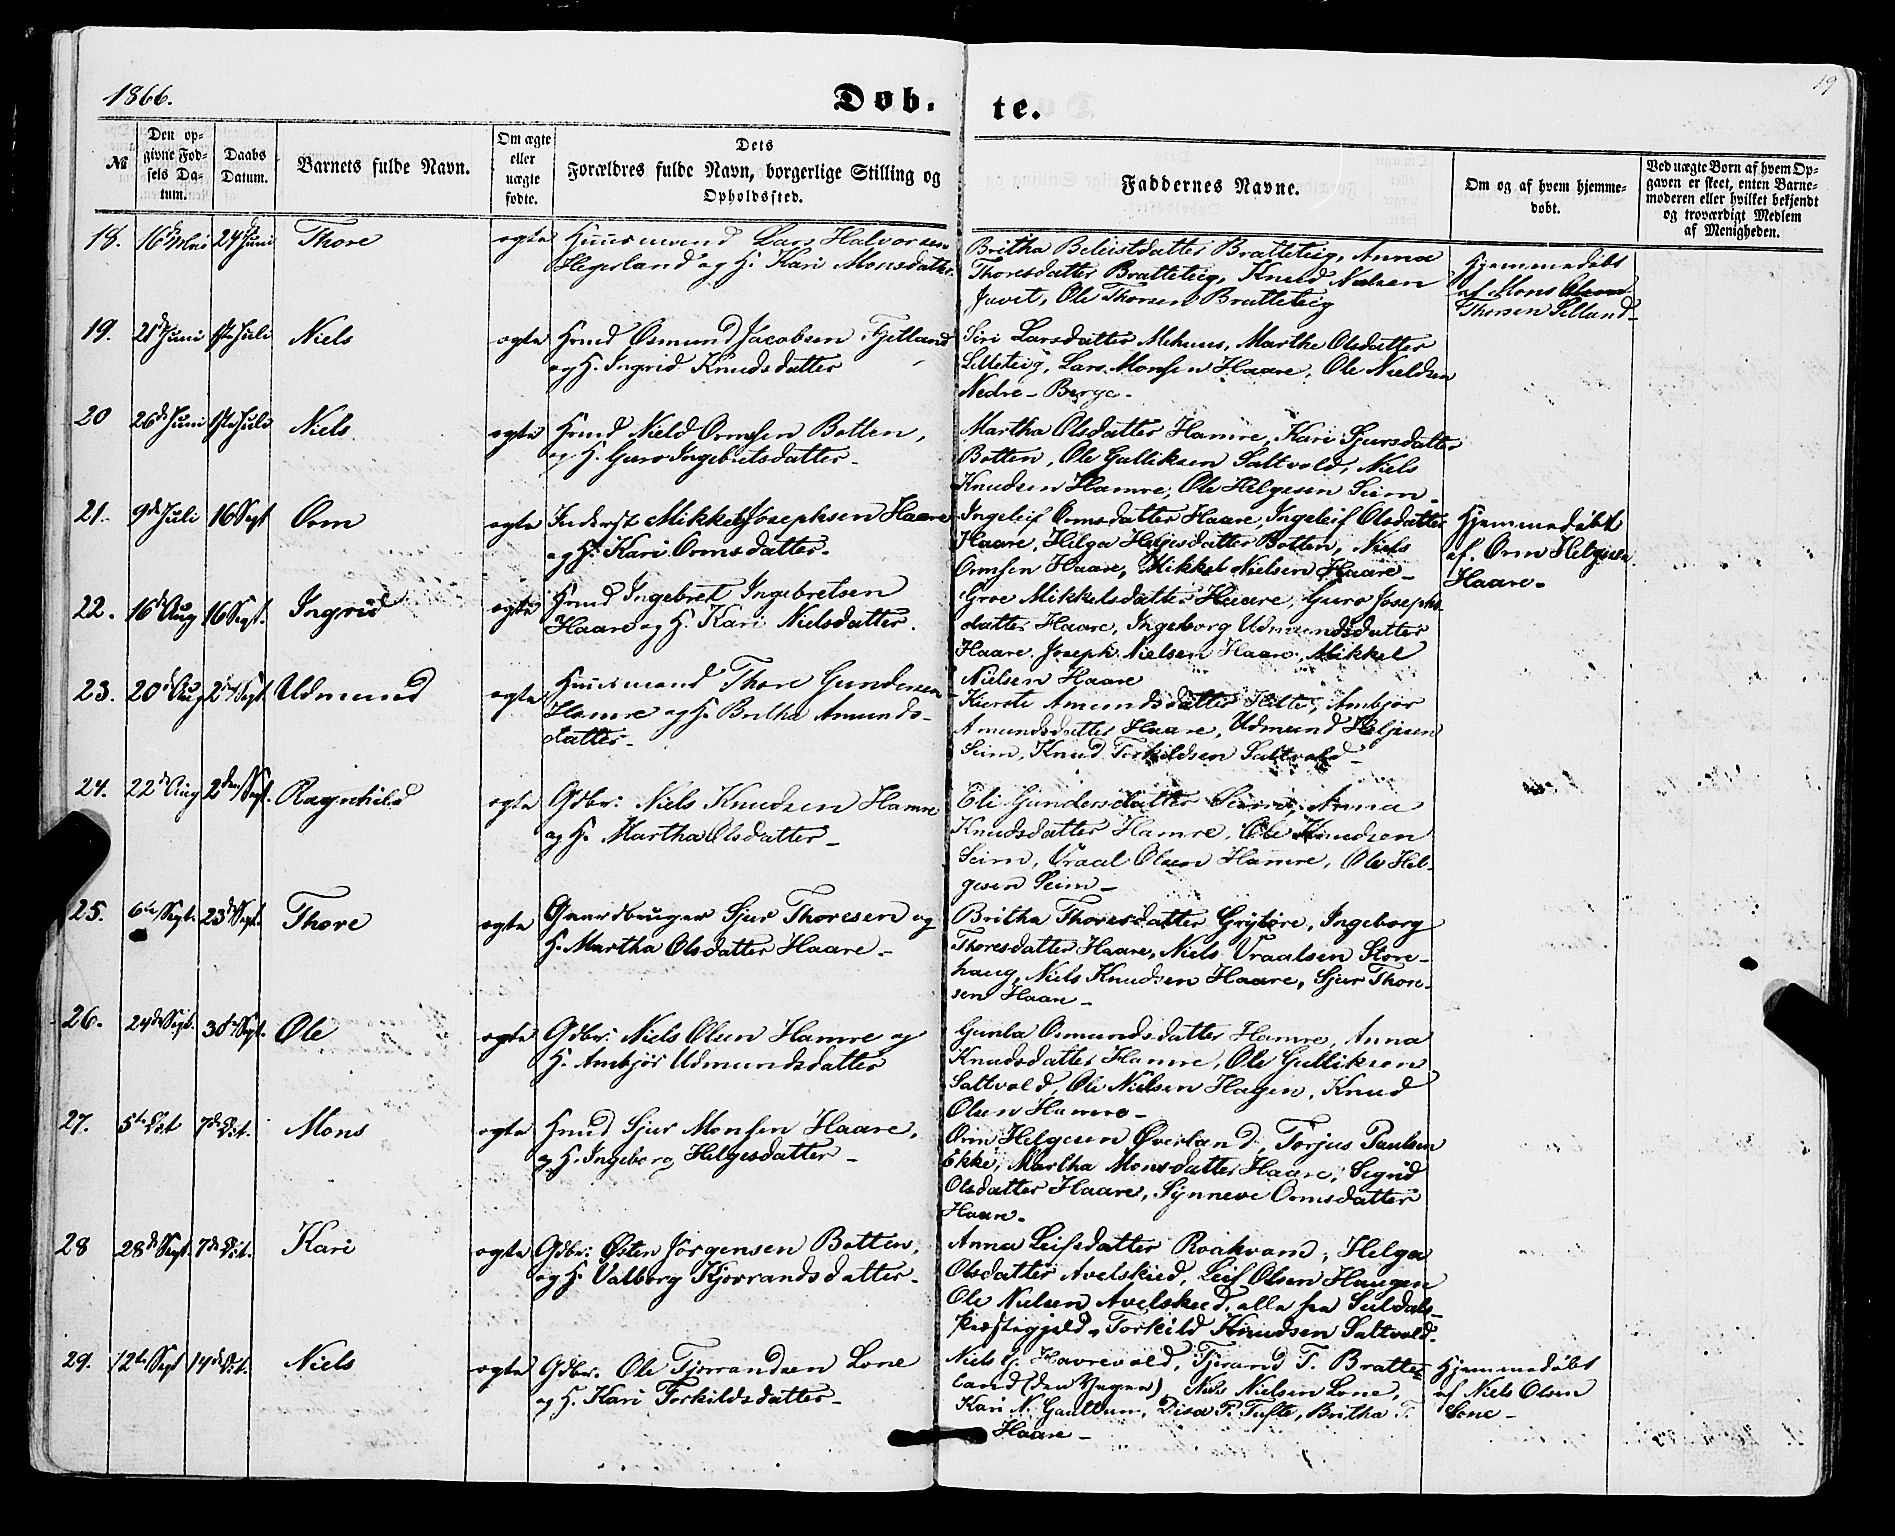 1866.
Døb-
te.
19
№
Den op-
givne Fød-
sels Da-
tum.
Daabs
Datum.
Barnets fulde Navn.
Om ægte
eller
uægte
fødte.
Dets
Forældres fulde Navn, borgerlige Stilling og
Opholdssted.
Faddernes Navne.
Om og af hvem hjemme-
døbt.
Ved uægte Børn af hvem Op-
gaven er skeet, enten Barne-
moderen eller hvilket bekjendt
og troværdigt Medlem
af Menigheden.
18. 16de Mai 24de Juni Thore ægte Huusmand Lars Halvorsen
Hegerland og H. Kari Monsdatter
Britha Danielsdatter Bratteteig, Anna
Thoresdatter Bratteteig, Knud Nielsen
Juvet, Ole Thorsen Bratteteig
Hjemmedøbt
af Mons
Thorsen Selland
19. 21de Juni 1ste Juli Niels ægte Hmd Osmund Jacobsen Fjetland
og H. Ingrid Knudsdatter
Siri Larsdatter Mehuus, Marthe Olsdatter
Litleteig, Lars Monsen Haare, Ole Nielsen
Nedre-Berge.
20 26de Juni 1ste Juli Niels ægte Hmd Nield Ormsen Botten,
og H. Guro Ingebretsdatter
Martha Olsdatter Hamre, Kari Sjursdatter
Botten, Ole Gulliksen Saltvold, Niels
Knudsen Hamre, Ole Helgesen Seim
21. 9de Juli 16 Sept Orm ægte Inderst Mikkel Josephsen Haare
og H. Kari Ormsdatter.
Ingeleif Ormsdatter Haare, Ingeleif Olsdatter
Haare, Helga Helgesdatter Botten, Niels
Ormsen Haare, Mikkel Nielsen Haare
Hjemmedøbt
af. Orm Helgesen
Haare.
22. 16de Aug 16 Sept. Ingrid ægte Hmd Ingebret Ingebretsen
Haare og H. Kari Nielsdatter.
Groe Mikkelsdatter Haare, Guro Josephs-
datter Haare, Ingeborg Udmundsdatter
Haare, Joseph Nielsen Haare, Mikkel
Nielsen Haare
23. 20de Aug 2den Sept. Udmund ægte Huusmand Thore Gundersen
Hamre og H. Britha Amunds-
datter
Kirsti Amundsdatter Helte, Ambjør
Amundsdatter Haare, Udmund Helgesen
Seim, Knud Torkildsen Saltvold
24. 22de Aug 2den Sept. Ragnhild ægte Gdbr. Niels Knudsen Hamre
og H. Martha Olsdatter
Eli Gundersdatter Seim, Anna
Knudsdatter Hamre, Ole Knudsen
Seim, Vraal Olsen Hamre, Ole Hel-
gesen Seim
25. 6te Sept. 23de Sept. Thore ægte Gaardbruger Sjur Thoresen og
H. Martha Olsdatter Haare
Britha Thoresdatter Grytøre, Ingeborg
Thoresdatter Haare, Niels Vraalsen Store-
haug, Niels Knudsen Haare, Sjur Thore-
sen Haare
26. 24de Sept. 30te Sept. Ole ægte Gdbr. Niels Olsen Hamre og
H. Ambjør Udmundsdatter
Gunla Osmundsdatter Hamre, Anna
Knudsdatter Hamre, Ole Gulliksen
Saltvold, Ole Nielsen Hagen, Knud
Olsen Hamre
27. 5te Oct 7de Oct. Mons ægte Hmd Sjur Monsen Haare,
og H. Ingeborg Helgesdatter
Orm Helgesen Øverland, Torjus Paulsen
Ekke, Martha Monsdatter Haare, Sigrid
Olsdatter Haare, Synneve Ormsdatter
Haare.
28 28de Sept. 7de Oct. Kari ægte Gdbr. Østen Jørgensen Botten,
og H. Valborg Kjørrandsdatter
Anna Leifsdatter Roakvam, Helga
Olsdatter Avelskied, Leif Olsen Haugen
Ole Nielsen Avelskied, alle fra Suldals
Præstegjeld, Torkild Knudsen Saltvold.
29. 12te Sept 14de Oct. Niels ægte Gdbr. Ole Tjerrandsen Lone
og H. Kari Torkildsdatter
Niels G. Havrevold, Tjerand T. Bratte-
land (den Yngre), Niels Nielsen Lone,
Kari N. , Disa P. Tufte, Britha T.
Haare
Hjemmedøbt
af Niels Olsen
Lone